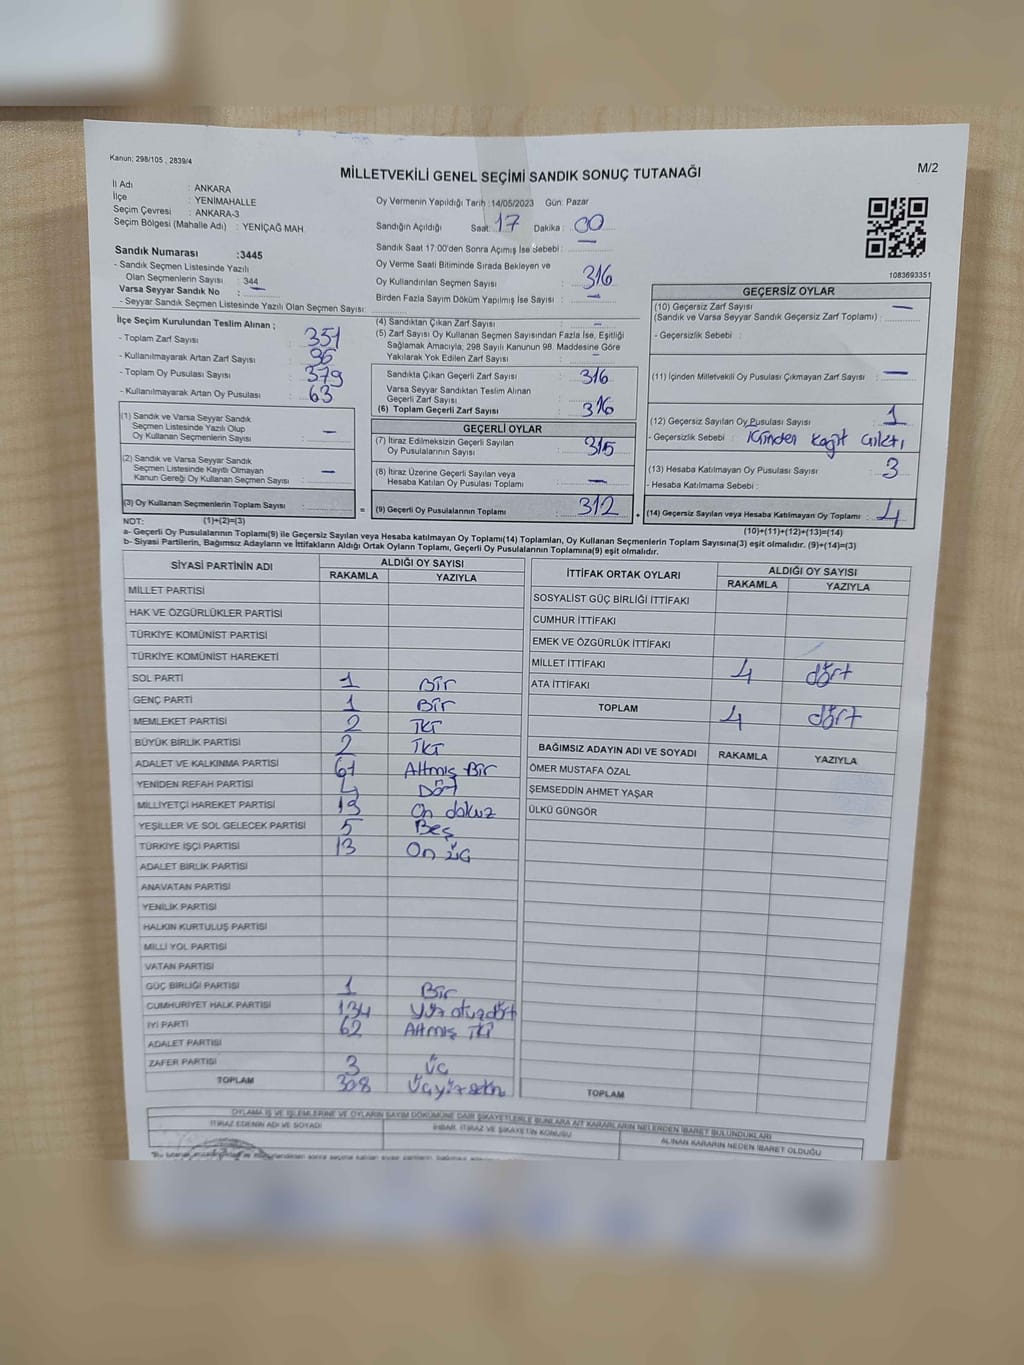 Kanun: 298/105 , 2839/4
M/2
MİLLETVEKİLİ GENEL SEÇİMİ SANDIK SONUÇ TUTANAĞI
İl Adı : ANKARA
İlçe : YENİMAHALLE
Seçim Çevresi : ANKARA-3
Seçim Bölgesi (Mahalle Adı) : YENİÇAĞ MAH.
Sandık Numarası :3445
- Sandık Seçmen Listesinde Yazılı
Olan Seçmenlerin Sayısı : 344
Varsa Seyyar Sandık No : —
- Seyyar Sandık Seçmen Listesinde Yazılı Olan Seçmen Sayısı:
Oy Vermenin Yapıldığı Tarih :14/05/2023 Gün: Pazar
Sandığın Açıldığı Saat: 17 Dakika : 00
Sandık Saat 17:00'den Sonra Açılmış İse Sebebi : —
Oy Verme Saati Bitiminde Sırada Bekleyen ve
Oy Kullandırılan Seçmen Sayısı : 316
Birden Fazla Sayım Döküm Yapılmış İse Sayısı : —
1083693351
İlçe Seçim Kurulundan Teslim Alınan ;
- Toplam Zarf Sayısı : 351
- Kullanılmayarak Artan Zarf Sayısı : 36
- Toplam Oy Pusulası Sayısı : 379
- Kullanılmayarak Artan Oy Pusulası : 63
(1) Sandık ve Varsa Seyyar Sandık
Seçmen Listesinde Yazılı Olup
Oy Kullanan Seçmenlerin Sayısı : —
(2) Sandık ve Varsa Seyyar Sandık
Seçmen Listesinde Kayıtlı Olmayan
Kanun Gereği Oy Kullanan Seçmen Sayısı : —
(3) Oy Kullanan Seçmenlerin Toplam Sayısı :
=
(4) Sandıktan Çıkan Zarf Sayısı : —
(5) Zarf Sayısı Oy Kullanan Seçmen Sayısından Fazla İse, Eşitliği
Sağlamak Amacıyla; 298 Sayılı Kanunun 98. Maddesine Göre
Yakılarak Yok Edilen Zarf Sayısı : —
Sandıkta Çıkan Geçerli Zarf Sayısı : 316
Varsa Seyyar Sandıktan Teslim Alınan
Geçerli Zarf Sayısı :
(6) Toplam Geçerli Zarf Sayısı : 316
GEÇERLİ OYLAR
(7) İtiraz Edilmeksizin Geçerli Sayılan
Oy Pusulalarının Sayısı : 315
(8) İtiraz Üzerine Geçerli Sayılan veya
Hesaba Katılan Oy Pusulası Toplamı : —
(9) Geçerli Oy Pusulalarının Toplamı : 312
+
GEÇERSİZ OYLAR
(10) Geçersiz Zarf Sayısı —
(Sandık ve Varsa Seyyar Sandık Geçersiz Zarf Toplamı) :
- Geçersizlik Sebebi :
(11) İçinden Milletvekili Oy Pusulası Çıkmayan Zarf Sayısı : —
(12) Geçersiz Sayılan Oy Pusulası Sayısı : 1
- Geçersizlik Sebebi : içinden kağıt çıktı
(13) Hesaba Katılmayan Oy Pusulası Sayısı : 3
- Hesaba Katılmama Sebebi :
(14) Geçersiz Sayılan veya Hesaba Katılmayan Oy Toplamı : 4
NOT: (1)+(2)=(3) (10)+(11)+(12)+(13)=(14)
a- Geçerli Oy Pusulalarının Toplamı(9) ile Geçersiz Sayılan veya Hesaba katılmayan Oy Toplamı(14) Toplamları, Oy Kullanan Seçmenlerin Toplam Sayısına(3) eşit olmalıdır. (9)+(14)=(3)
b- Siyasi Partilerin, Bağımsız Adayların ve İttifakların Aldığı Ortak Oyların Toplamı, Geçerli Oy Pusulalarının Toplamına(9) eşit olmalıdır.
SİYASİ PARTİNİN ADI ALDIĞI OY SAYISI
RAKAMLA YAZIYLA
MİLLET PARTİSİ
HAK VE ÖZGÜRLÜKLER PARTİSİ
TÜRKİYE KOMÜNİST PARTİSİ
TÜRKİYE KOMÜNİST HAREKETİ
SOL PARTİ 1 Bir
GENÇ PARTİ 1 Bir
MEMLEKET PARTİSİ 2 İki
BÜYÜK BİRLİK PARTİSİ 2 İki
ADALET VE KALKINMA PARTİSİ 61 Altmış Bir
YENİDEN REFAH PARTİSİ 4 Dört
MİLLİYETÇİ HAREKET PARTİSİ 19 On dokuz
YEŞİLLER VE SOL GELECEK PARTİSİ 5 Beş
TÜRKİYE İŞÇİ PARTİSİ 13 On üç
ADALET BİRLİK PARTİSİ
ANAVATAN PARTİSİ
YENİLİK PARTİSİ
HALKIN KURTULUŞ PARTİSİ
MİLLİ YOL PARTİSİ
VATAN PARTİSİ
GÜÇ BİRLİĞİ PARTİSİ 1 Bir
CUMHURİYET HALK PARTİSİ 134 Yüz otuzdört
İYİ PARTİ 62 Altmış İki
ADALET PARTİSİ
ZAFER PARTİSİ 3 Üç
TOPLAM 308 Üçyüzsekiz
İTTİFAK ORTAK OYLARI ALDIĞI OY SAYISI
RAKAMLA YAZIYLA
SOSYALİST GÜÇ BİRLİĞİ İTTİFAKI
CUMHUR İTTİFAKI
EMEK VE ÖZGÜRLÜK İTTİFAKI
MİLLET İTTİFAKI 4 dört
ATA İTTİFAKI
TOPLAM 4 dört
BAĞIMSIZ ADAYIN ADI VE SOYADI RAKAMLA YAZIYLA
ÖMER MUSTAFA ÖZAL
ŞEMSEDDİN AHMET YAŞAR
ÜLKÜ GÜNGÖR
TOPLAM
OYLAMA İŞ VE İŞLEMLERİNE VE OYLARIN SAYIM DÖKÜMÜNE DAİR ŞİKAYETLERLE BUNLARA AİT KARARLARIN NELERDEN İBARET BULUNDUKLARI
İTİRAZ EDENİN ADI VE SOYADI İHBAR, İTİRAZ VE ŞİKAYETİN KONUSU ALINAN KARARIN NEDEN İBARET OLDUĞU